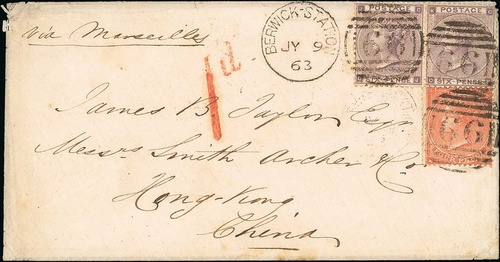 via Marseilles
BERWICK-STATION
JY 9
63
1d
POSTAGE
SIX PENCE
66
POSTAGE
SIX PENCE
66
66
James B Taylor Esqr
Messrs Smith Archer & Co.
Hong-Kong
China